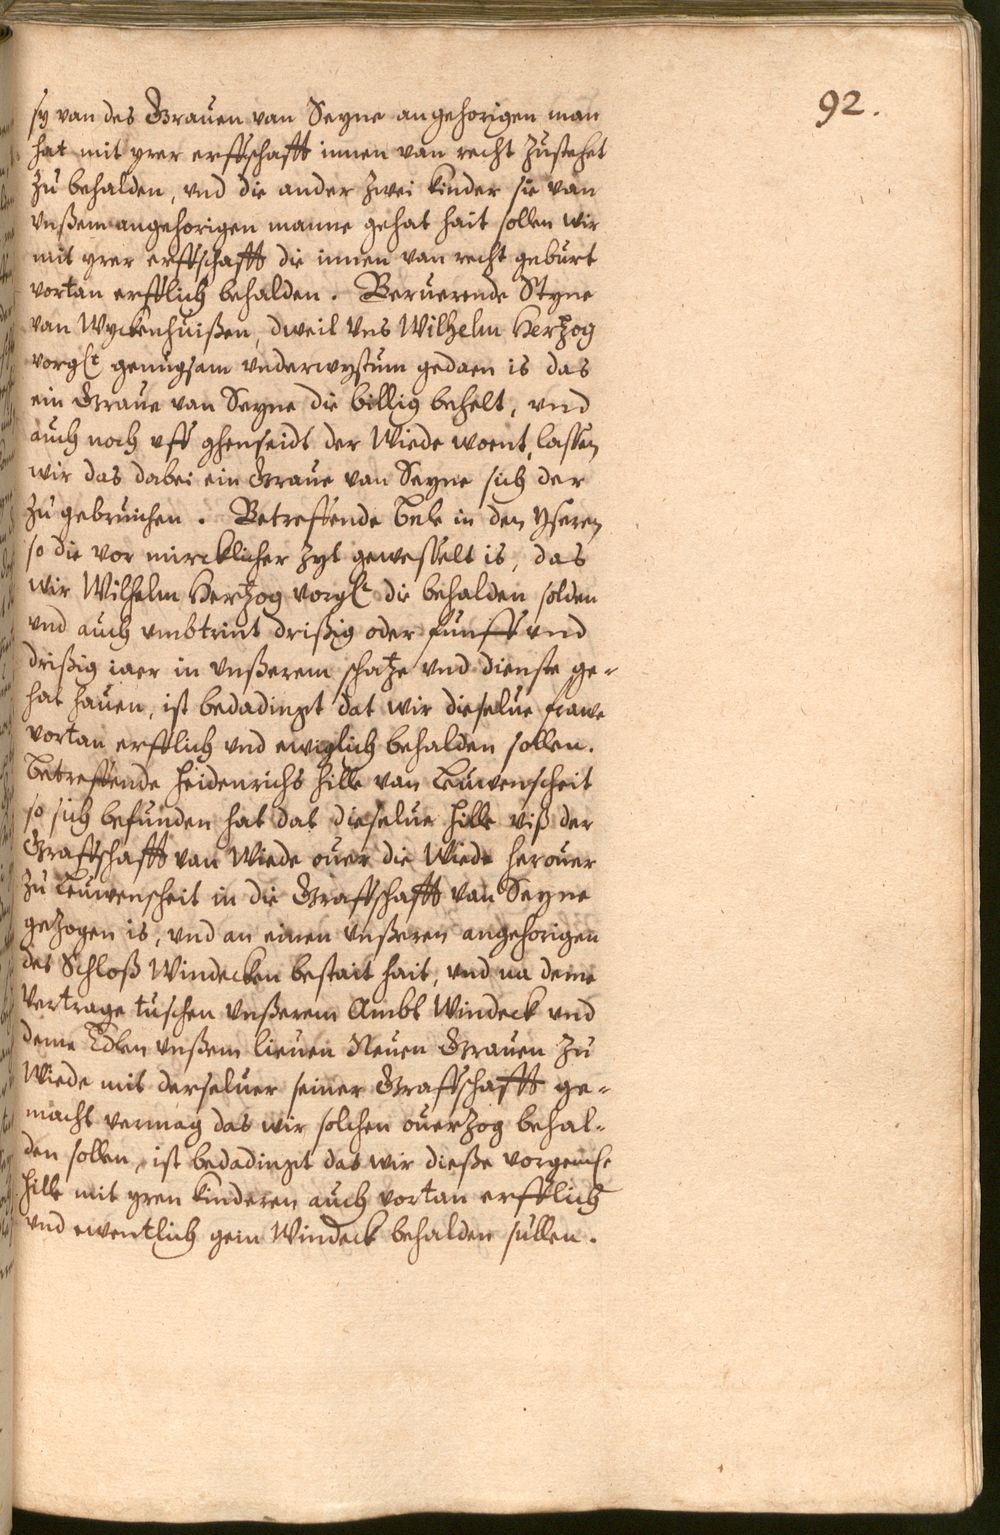 92.
sy van des Grauen van Seyne angehorigen man
hat mit yrer erffschafft innen van recht zustehet
zu behalden, vnd die ander zwei kinder sie van
vnßem angehorigen manne gehat hait sollen wir
mit yrer erffschafft die innen van recht geburt
vortan erfflich behalden. Beruerende Styne
van Wyckenhuißen, dweil vns Wilhelm Hertzog
vorgl<sup>t</sup> genugsam vnderwystum gedaen is das
ein Graue van Seyne die billig behelt, vnd
auch noch vff ghenseidt der Wiede woent, lassen
wir das dabei ein Graue van Seyne sich der
zu gebruichen. Betreffende Bele in den Yseren
so die vor mircklicher zyt gewesselt is, das
wir Wilhelm Hertzog vorgl<sup>t</sup> die behalden solden
vnd auch vmbtrint drißig oder funff vnd
drißig iaer in vnßerem schatze vnd dienste ge-
hat hauen, ist bedadingt dat wir dieselue frawe
vortan erfflich vnd ewiglich behalden sollen.
Betreffende Heidenrichs Hille van Leuwenscheit
so sich befunden hat dat dieselue Hille viß der
Graffschafft van Wiede ouer die Wiede herouer
zu Leuwenscheit in die Graffschafft van Seyne
gezogen is, vnd an einen vnßeren angehorigen
des Schloß Windecken bestait hait, vnd na deme
Vertrage tuschen vnßerem Ambt Windeck vnd
deme Edlen vnßem lieuen Neuen Grauen zu
Wiede mit derseluer seiner Graffschafft ge-
macht vermag das wir solchen ouerzog behal-
den sollen, ist bedadingt das wir dieße
Hille mit yren kinderen auch vortan erfflich
vnd ewentlich gein Windeck behalden sullen.